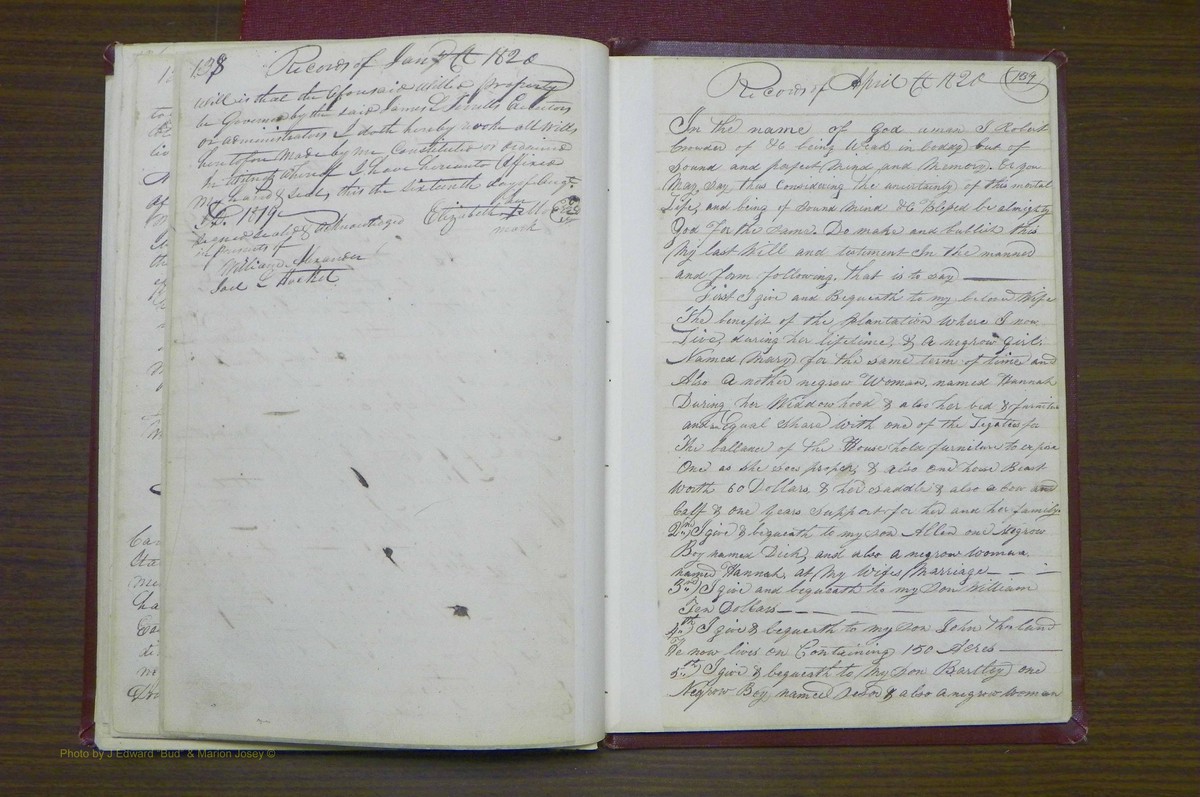 138 Records of Jany Ct 1820
will is that the aforesaid willed property
be Governed by the said James Executors
or administrators I doth hereby revoke all Wills
heretofore Made by me Constituted or ordained
In Witness whereof I have hereunto Affixed
my hand & seal, this the Sixteenth day of Augt.
AD. 1819
Signed seald & acknowledged
in presents of
Elizabeth
her
mark
William Alexander
139
Records of April Ct 1820
In the name of God amen I Robert
Crowder of &c being Weak in body but of
Sound and perfect Mind and Memory. Or you
May Say thus Considering the uncertainty of this mortal
Life, and being of Sound Mind &C Blessed be almighty
God For the same. Do make and publish this
My last Will and testiment In the manner
and form following. that is to say
First I give and Bequeath to my beloved Wife
The benefit of the plantation Where I now
Live, during her lifetime, & A negrow Girl
Named Mary for the same term of time and
Also Another negrow Woman, named Hannah
During her Widdowhood & also her bed & furniture
and an Equal Share with one of the Legatees for
The ballance of the House hold furniture to
One as she sees proper, & also one horse Beast
Worth 60 Dollars & her saddle & also a Cow and
Calf & one years support for her and her family
2nd) I give & bequeath to my son Allen one Negrow
Boy named Dick, and also A negrow Woman
named Hannah, at My Wifes Marriage
3rd) I give and bequeath to my Son William
Ten Dollars
4th) I give & bequeath to my Son John The land
He now lives on Containing 150 Acres
5th) I give & bequeath to my Son Bartley one
Negrow Boy named & also A negrow Woman
Photo by J Edward "Bud" & Marion Josey ©